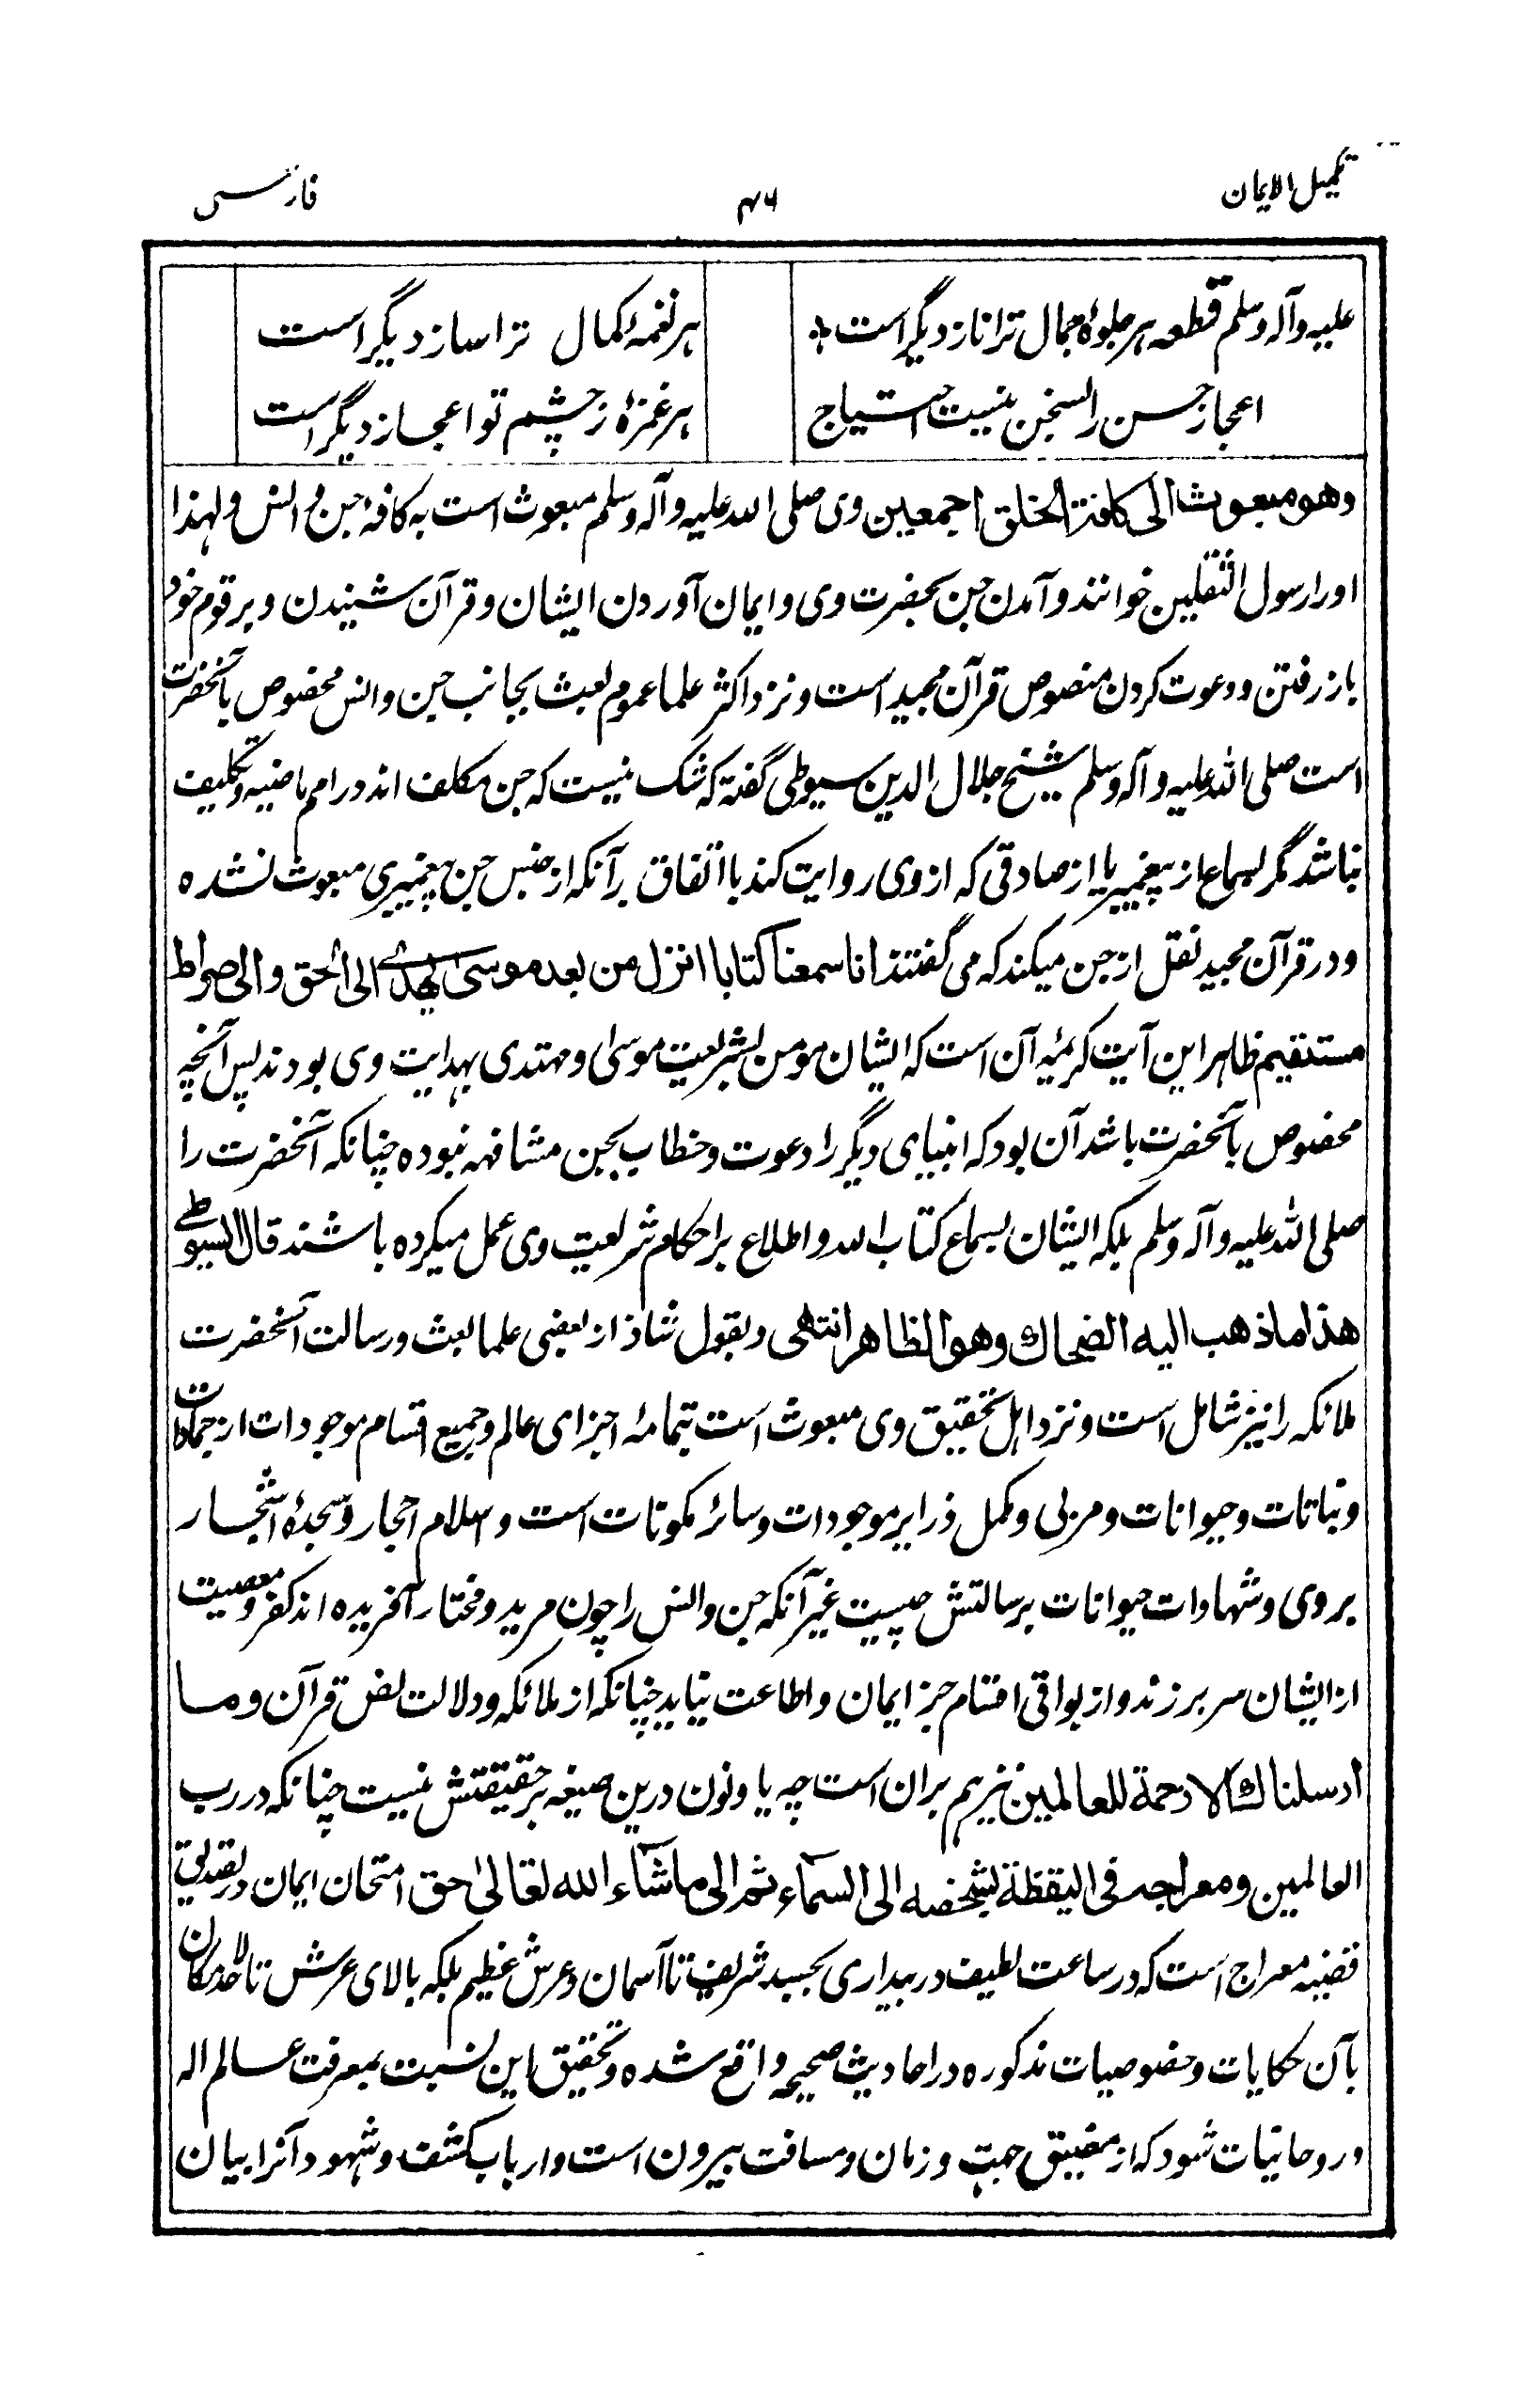 تکمیل الایمان
۴۶
فارسی
علیه وآله وسلم قطعه هر جلوهٔ جمال ترا ناز دیگر است
هر نغمهٔ کمال ترا ساز دیگر است
اعجاز حسن را بسخن نیست احتیاج
هر غمزهٔ ز چشم تو اعجاز دیگر است
وهو مبعوث الی کافة الخلق اجمعین وی صلی الله علیه وآله وسلم مبعوث است به کافهٔ جن و انس ولهذا
اورا رسول الثقلین خوانند و آمدن جن بحضرت وی و ایمان آوردن ایشان و قرآن شنیدن و بر قوم خود
باز رفتن و دعوت کردن منصوص قرآن مجید است و نزد اکثر علما عموم بعث بجانب جن و انس مخصوص بآنحضرت
است صلی الله علیه وآله وسلم شیخ جلال الدین سیوطی گفته که شک نیست که جن مکلف اند در امم ماضیه و تکلیف
نباشد مگر بسماع از پیغمبر یا از صادقی که از وی روایت کند با اتفاق بر آنکه از جنس جن پیغمبری مبعوث نشده
و در قرآن مجید نقل از جن میکند که می گفتند انا سمعنا کتابا انزل من بعد موسی یهدی الی الحق والی صراط
مستقیم ظاهر این آیت کریمه آن است که ایشان مومن بشریعت موسی و مهتدی بهدایت وی بودند پس آنچه
مخصوص بآنحضرت باشد آن بود که انبیای دیگر را دعوت و خطاب بجن مشافهه نبوده چنانکه آنحضرت را
صلی الله علیه وآله وسلم بلکه ایشان بسماع کتاب الله و اطلاع بر احکام شریعت وی عمل میکرده باشند قال السیوطی
هذا ما ذهب الیه الضحاک وهو الظاهر انتهی و بقول شاذ از بعضی علما بعث و رسالت آنحضرت
ملائکه را نیز شامل است و نزد اهل تحقیق وی مبعوث است بتمامهٔ اجزای عالم و جمیع اقسام موجودات از جمادات
و نباتات و حیوانات و مربی و مکمل ذرایر موجودات و سائر مکونات است و اسلام احجار و سجدهٔ اشجار
بر وی و شهادات حیوانات برسالتش چیست غیر آنکه جن و انس را چون مرید و مختار آفریده اند کفر و معصیت
از ایشان سر بر زند و از بواقی اقسام جز ایمان و اطاعت نیاید چنانکه از ملائکه و دلالت نص قرآن وما
ارسلناک الا رحمة للعالمین نیز هم بران است چه یا و نون درین صیغه بر حقیقتش نیست چنانکه در رب
العالمین ومعراجه فی الیقظة بشخصه الی السماء ثم الی ما شاء الله تعالی حق امتحان ایمان در تصدیق
قضیه معراج است که در ساعت لطیف در بیداری بجسد شریف تا آسمان و عرش عظیم بلکه بالای عرش تا لامکان
بآن حکایات و خصوصیات مذکوره در احادیث صحیحه واقع شده و تحقیق این نسبت بمعرفت عالم اله
و روحانیات شود که از مضیق جهت و زمان و مسافت بیرون است و ارباب کشف و شهود آنرا بیان